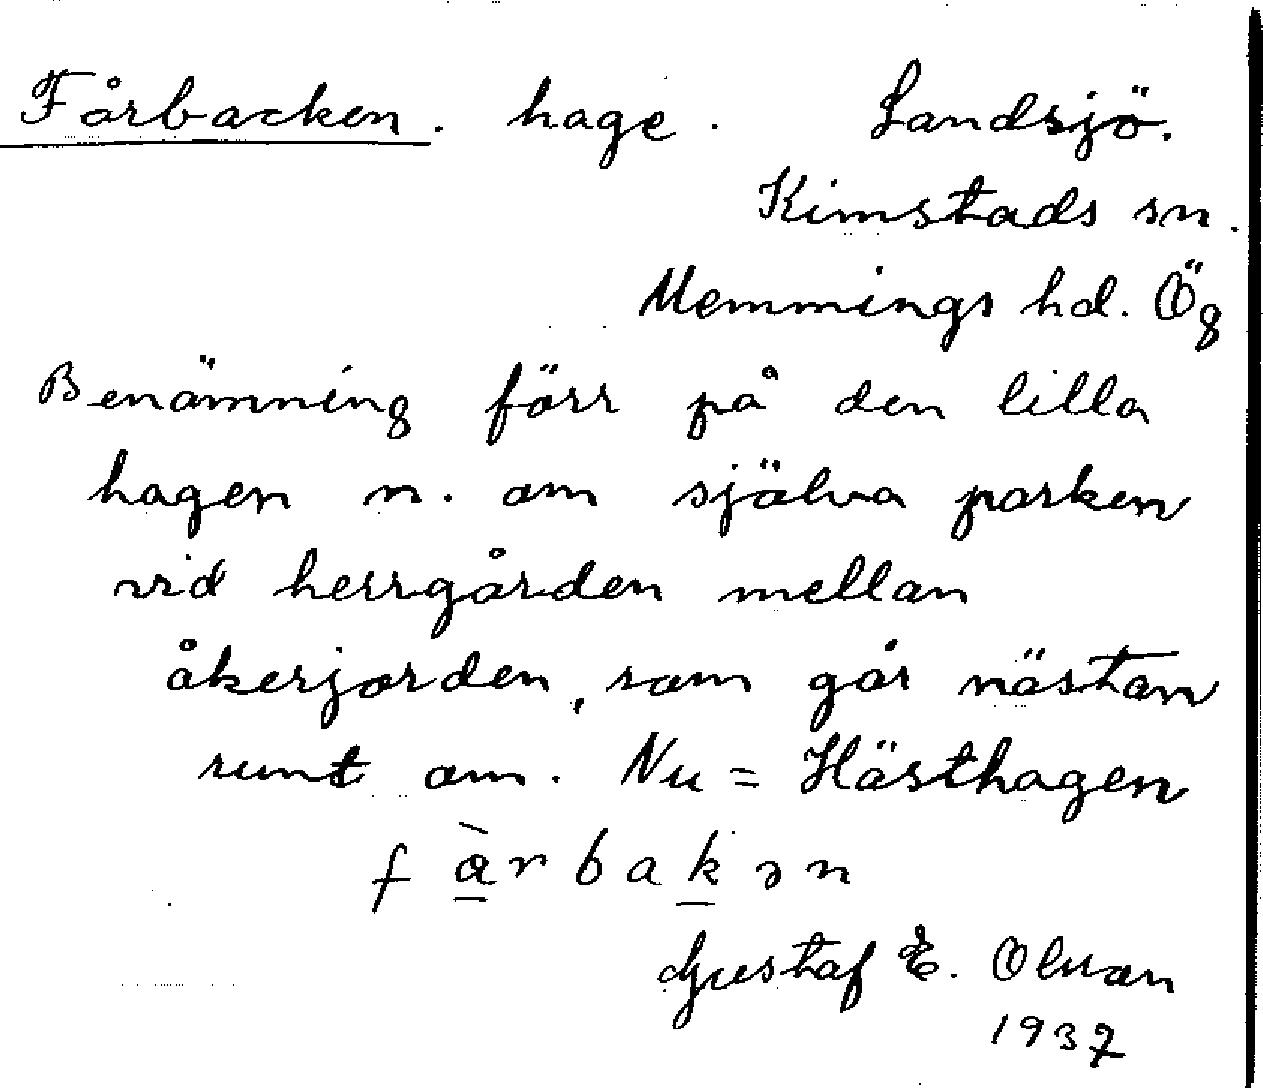 Fårbacken. hage. Landsjö.
Kimstads sn.
Memmings hd. Ög
Benämning förr på den lilla
hagen n. om själva parken
vid herrgården mellan
åkerjorden, som går nästan
runt om. Nu = Hästhagen
Gustaf E. Olvan
1937